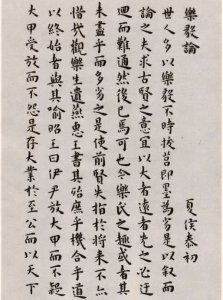 樂毅論
夏侯泰初
世人多以樂毅不時拔莒即墨為劣是以叙而
論之夫求古賢之意宜以大者遠者先之必迂
迴而難通然後已焉可也今樂氏之趣或者其
未盡乎而多劣之是使前賢失指於将来不亦
惜哉觀樂生遺燕惠王書其殆庶乎機合乎道
以終始者與其喻昭王曰伊尹放大甲而不疑
大甲受放而不怨是存大業於至公而以天下